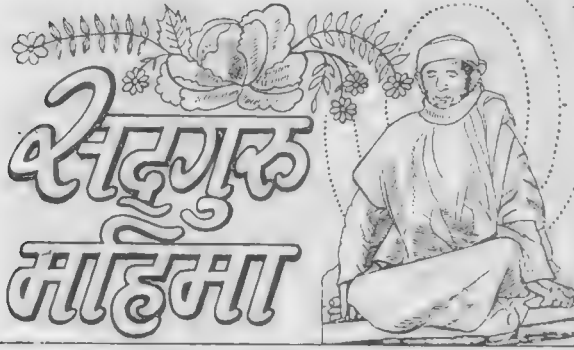 सद्गुरु
महिमा